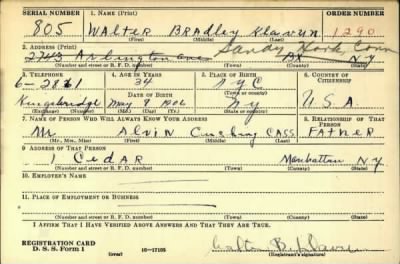 SERIAL NUMBER 1. NAME (Print) ORDER NUMBER
805 Walter Bradley Klavun 1290
2. ADDRESS (Print) Sandy Hook Conn
2743 Arlington ave BX NY
(Number and street or R. F. D. number) (Town) (County) (State)
3. TELEPHONE 4. AGE IN YEARS 5. PLACE OF BIRTH 6. COUNTRY OF CITIZENSHIP
6-2861 34 NYC
Kingsbridge DATE OF BIRTH (Town or county)
May 8 1906 NY U.S.A.
(Exchange) (Number) (Mo.) (Day) (Yr.) (State or country)
7. NAME OF PERSON WHO WILL ALWAYS KNOW YOUR ADDRESS 8. RELATIONSHIP OF THAT PERSON
Mr. Alvin Cushing CASS FATHER
(Mr., Mrs., Miss) (First) (Middle) (Last)
9. ADDRESS OF THAT PERSON
1 Cedar Manhattan NY
(Number and street or R. F. D. number) (Town) (County) (State)
10. EMPLOYER'S NAME
11. PLACE OF EMPLOYMENT OR BUSINESS
(Number and street or R. F. D. number) (Town) (County) (State)
I AFFIRM THAT I HAVE VERIFIED ABOVE ANSWERS AND THAT THEY ARE TRUE.
REGISTRATION CARD
D. S. S. Form 1 (over) 16-17105 Walter B. Klavun
(Registrant's signature)